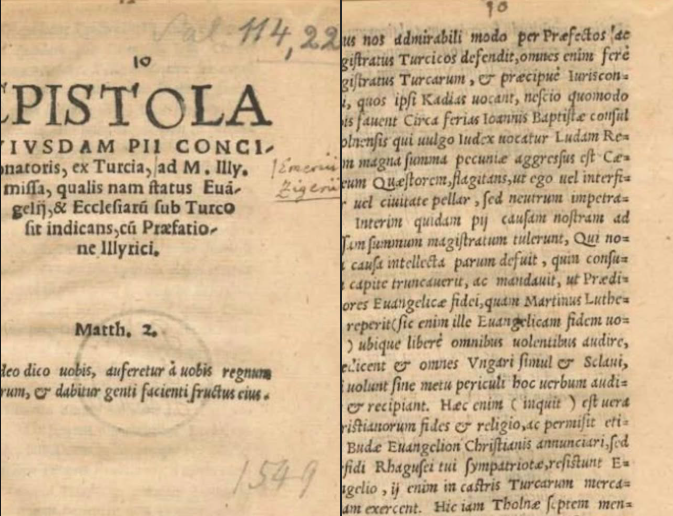 al 114, 22
10
EPISTOLA
VIVSDAM PII CONCI-
onatoris, ex Turcia, ad M. Illy.
missa, qualis nam status Euã-
gelij, & Ecclesiarũ sub Turco
sit indicans, cũ Præfatio-
ne Illyrici.
Zigerii
Matth. 2.
deo dico uobis, auferetur à uobis regnum
rum, & dabitur genti facienti fructus eius.
1549
10
us nos admirabili modo per Præfectos ac
gistratus Turcicos defendit, omnes enim ferè
gistratus Turcarum, & præcipuè Iuriscon=
i, quos ipsi Kadias uocant, nescio quomodo
is fauent Circa ferias Ioannis Baptistæ consul
olnensis qui uulgo Iudex uocatur Ludam Re=
m magna summa pecuniæ aggressus est Cæ=
eum Quæstorem, flagitans, ut ego uel interfi=
r uel ciuitate pellar, sed neutrum impetra=
Interim quidam pij causam nostram ad
sam summum magistratum tulerunt, Qui no=
causa intellecta parum defuit, quin consu=
capite truncauerit, ac mandauit, ut Prædi=
ores Euangelicæ fidei, quam Martinus Luthe=
reperit (sic enim ille Euangelicam fidem uo=
) ubique liberè omnibus uolentibus audire,
edicent & omnes Vngari simul & Sclaui,
i uolunt sine metu periculi hoc uerbum audi=
& recipiant. Hæc enim (inquit) est uera
ristianorum fides & religio, ac permisit eti=
Budæ Euangelion Christianis annunciari, sed
fidi Rhagusei tui sympatriotæ, resistunt E=
ngelio, ij enim in castris Turcarum merca=
am exercent. Hic iam Tholnæ septem men=